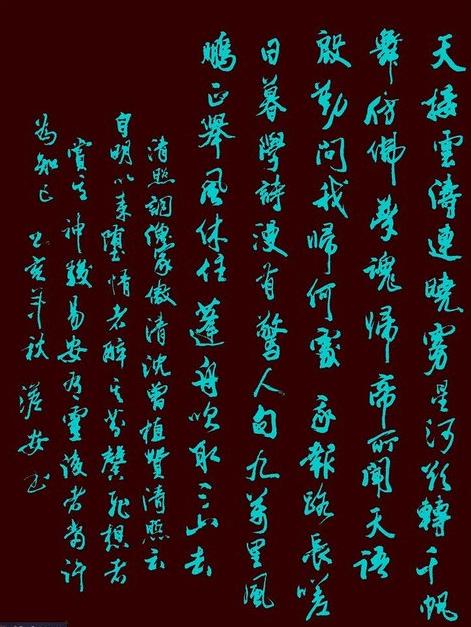 天接雲濤連曉雾星河欲轉千帆
舞彷佛夢魂歸帝所聞天語
殷勤問我歸何處我報路長嗟
日暮學詩漫有驚人句九萬里風
鵬正舉風休住蓬舟吹取三山去
清照調家傲清沈曾植贊清照云
自明以來墮情者醉其芬馨飛想者
賞其神駿易安有靈後者當許
為知己 乙亥年秋 安书